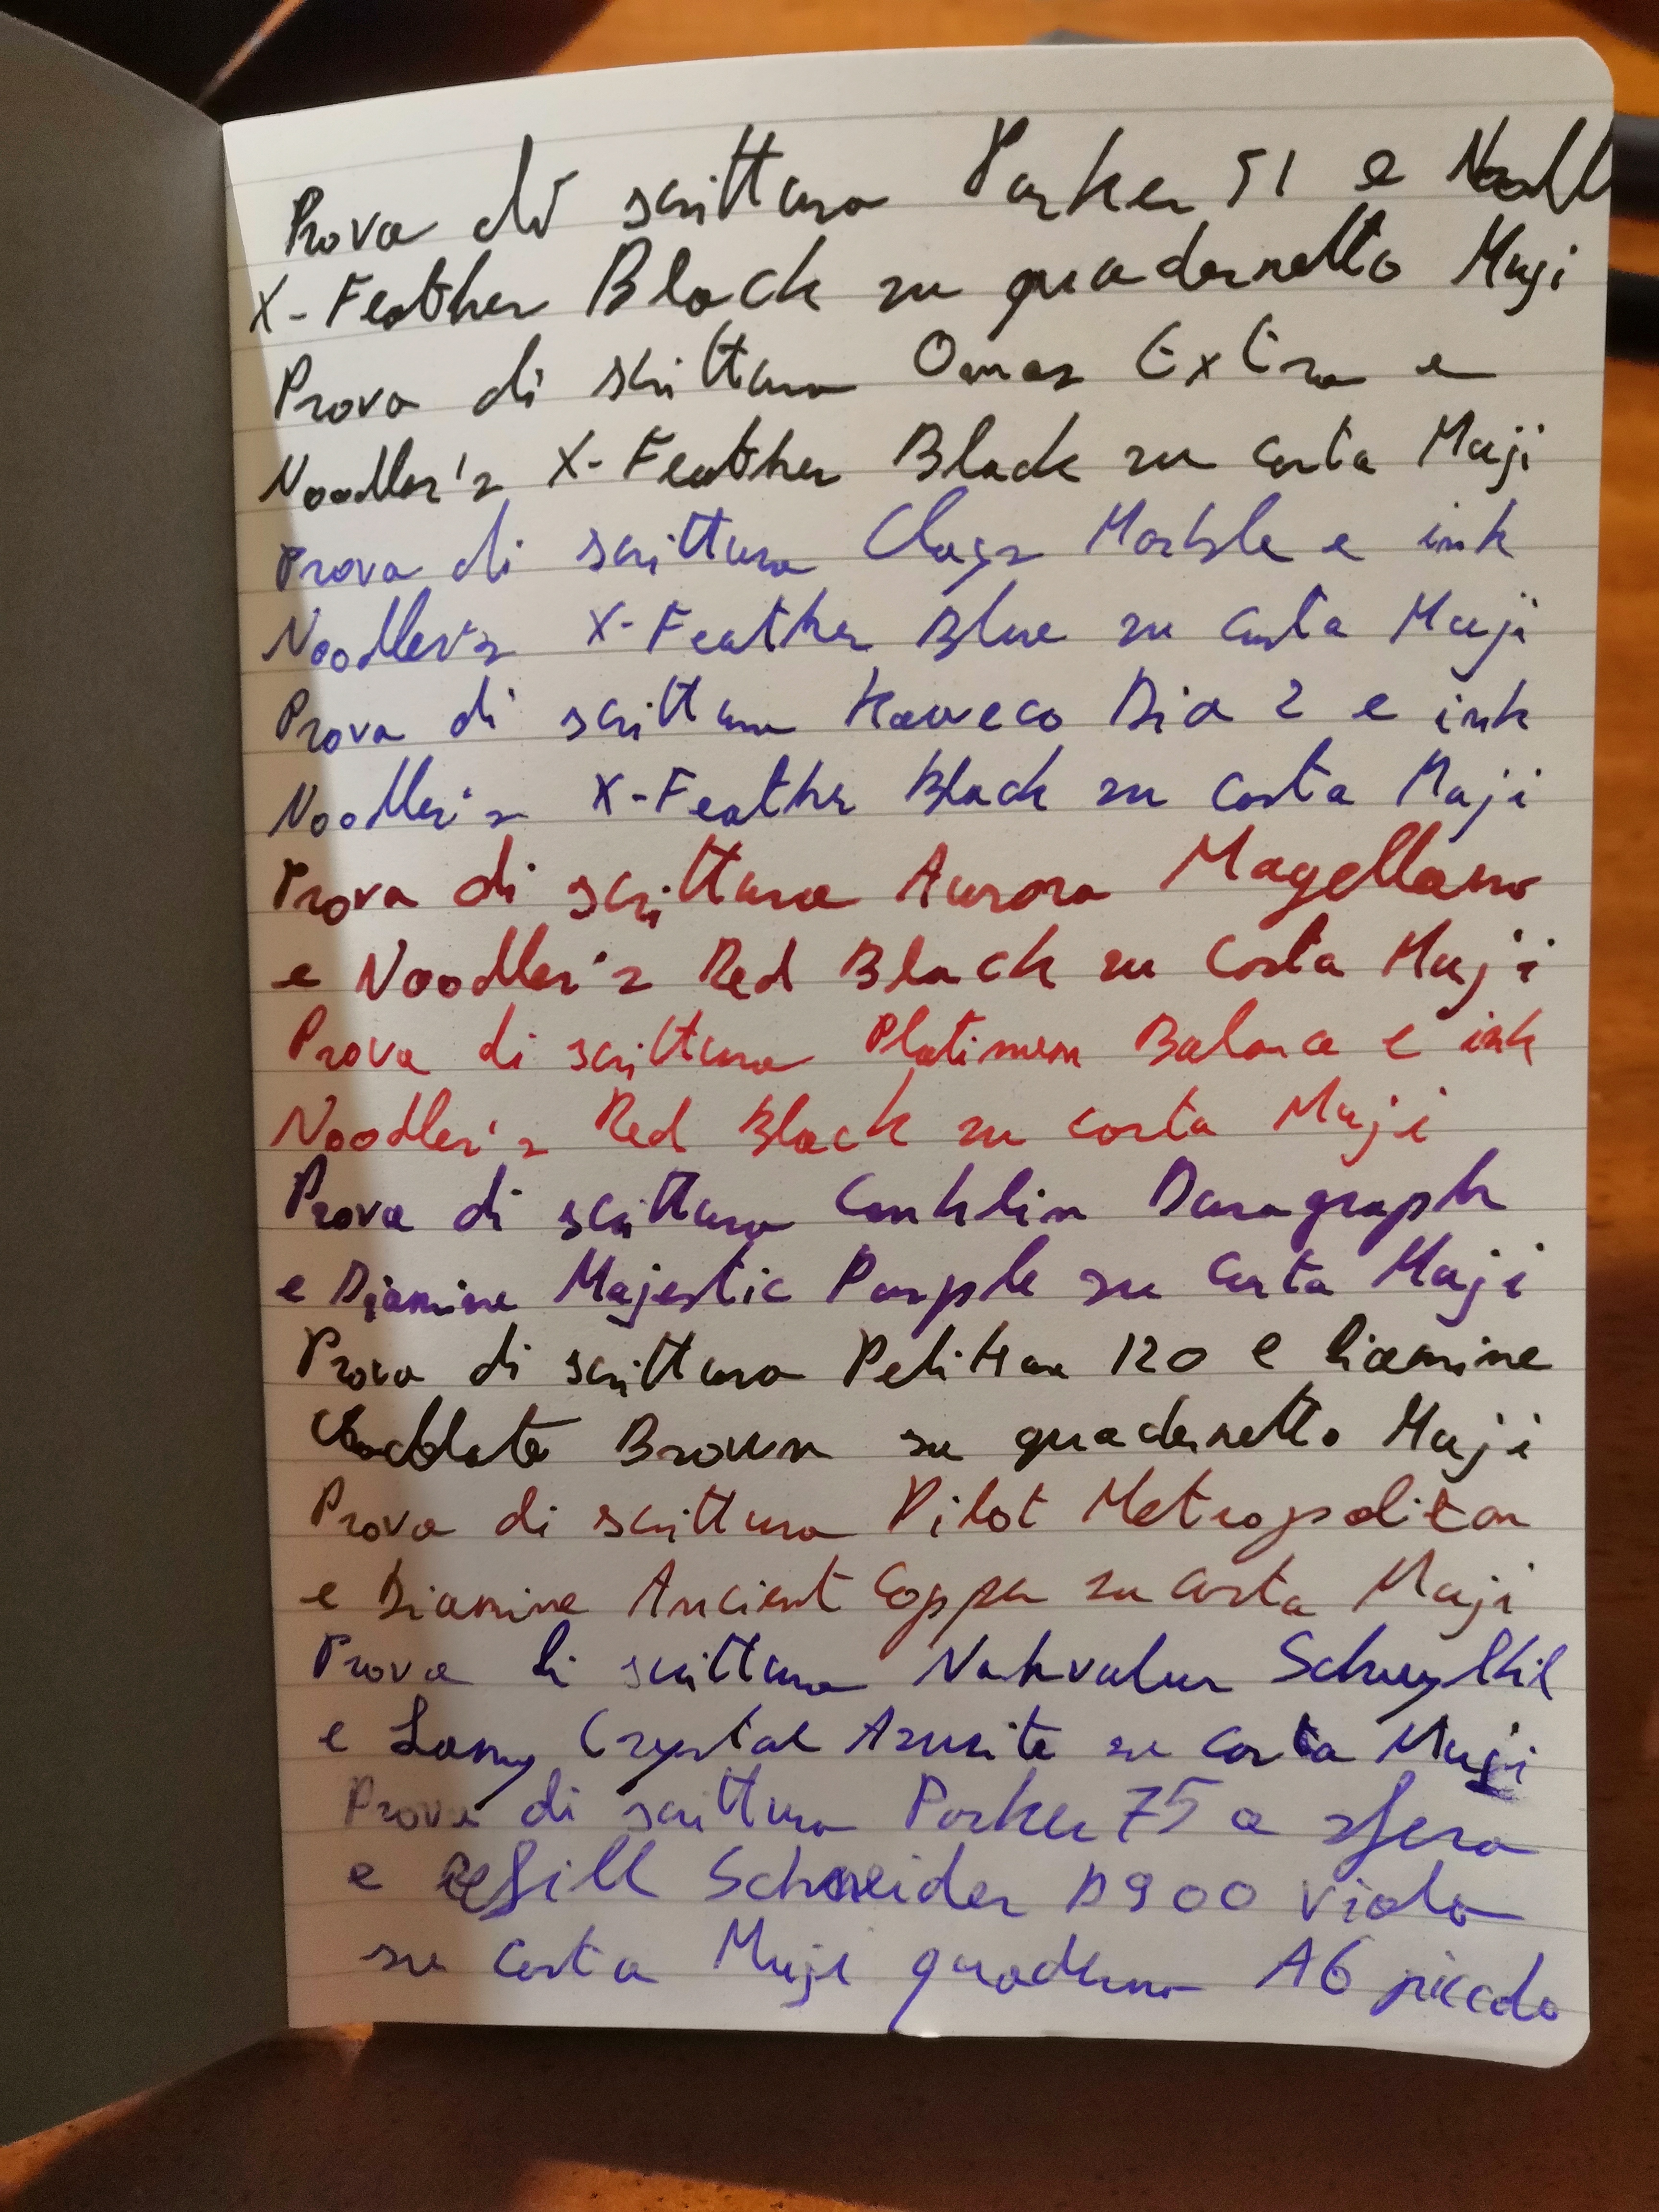 Prova di scrittura Parker 51 e Noodl
X-Feather Black su quadernetto Muji
Prova di scrittura Omas Extra e
Noodler's X-Feather Black su carta Muji
Prova di scrittura Marble e ink
Noodler's X-Feather Blue su carta Muji
Prova di scrittura Kaweco Dia 2 e ink
Noodler's X-Feather Black su carta Muji
Prova di scrittura Aurora Magellano
e Noodler's Red Black su carta Muji
Prova di scrittura Platinum Balance e ink
Noodler's Red Black su carta Muji
Prova di scrittura Conklin Duragraph
e Diamine Majestic Purple su carta Muji
Prova di scrittura Pelikan 120 e Diamine
Chocolate Brown su quadernetto Muji
Prova di scrittura Pilot Metropolitan
e Diamine Ancient Copper su carta Muji
Prova di scrittura Nahvalur Schuylkil
e Lamy Crystal Azurite su carta Muji
Prova di scrittura Parker 75 a sfera
e refill Schneider D900 viola
su carta Muji quaderno A6 piccolo